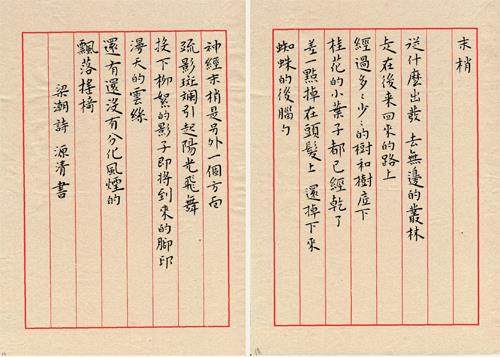 末梢
從什麼出發 去無邊的叢林
走在後來回來的路上
經過多多少少的樹和樹底下
桂花的小葉子都已經乾了
差一點掉在頭髮上 還掉下來
蜘蛛的後腦勺
神經末梢是另外一個方面
疏影斑斕引起陽光飛舞
投下柳絮的影子即將到來的腳印
漫天的雲絲
還有還沒有分化風煙的
飄落搖椅
梁潮詩 源清書